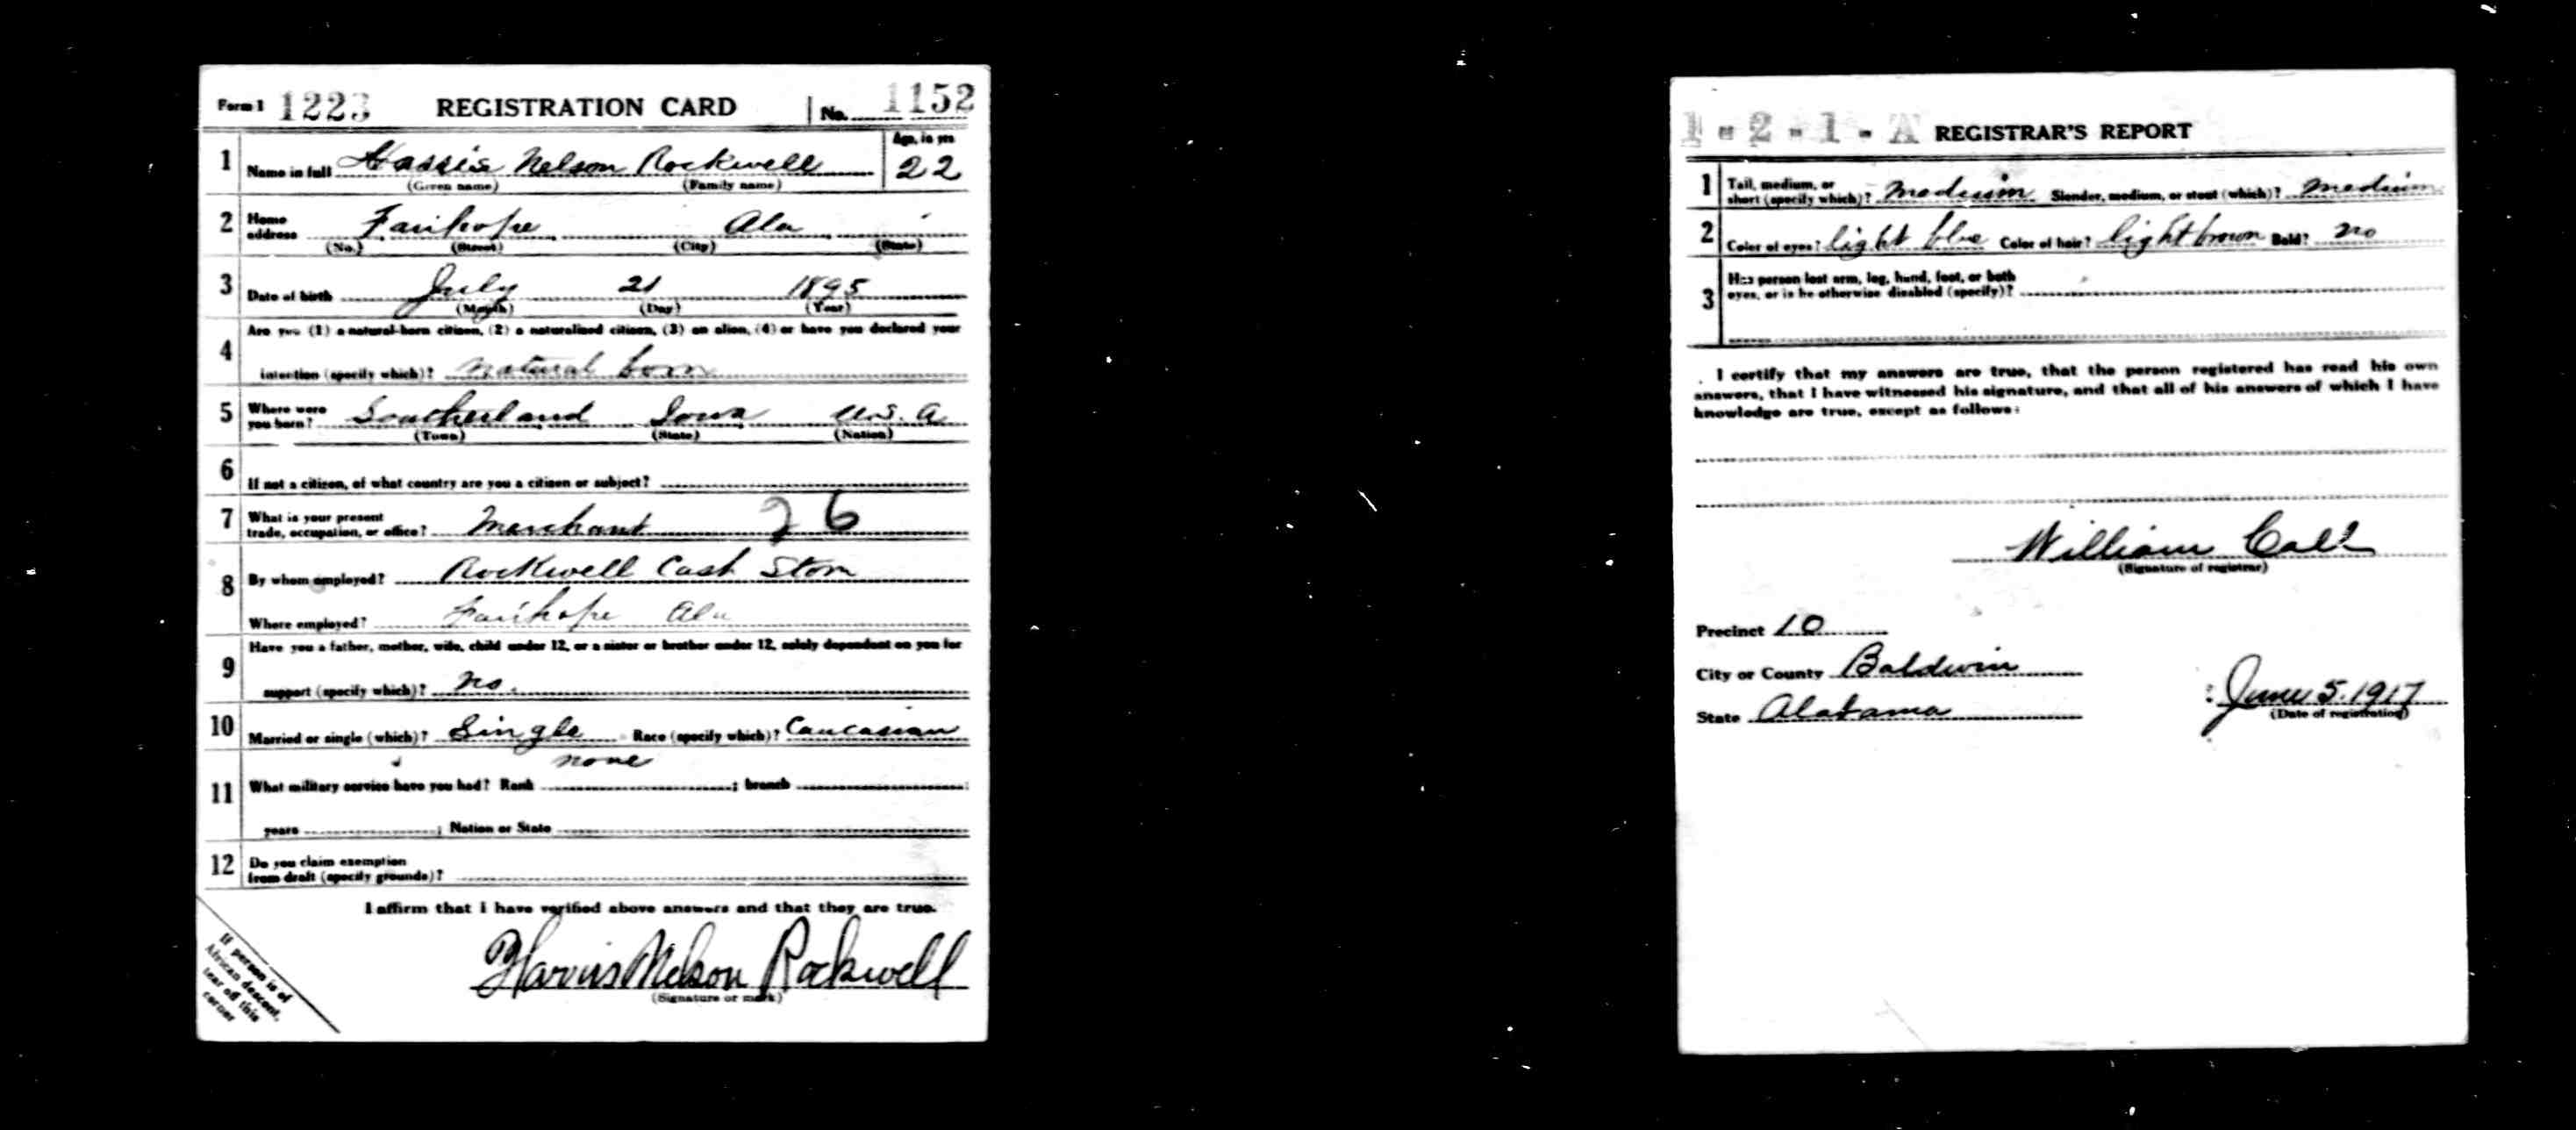 Form 1 1223 REGISTRATION CARD No. 1152
1 Name in full Harris Nelson Rockwell Age, in yrs 22
(Given name) (Family name)
2 Home address Fairhope Ala
(No.) (Street) (City) (State)
3 Date of birth July 21 1895
(Month) (Day) (Year)
4 Are you (1) a natural-born citizen, (2) a naturalized citizen, (3) an alien, (4) or have you declared your
intention (specify which)? natural born
5 Where were you born? Southerland Iowa U.S.A
(Town) (State) (Nation)
6 If not a citizen, of what country are you a citizen or subject?
7 What is your present trade, occupation, or office? Merchant 26
8 By whom employed? Rockwell Cash Store
Where employed? Fairhope Ala
9 Have you a father, mother, wife, child under 12, or a sister or brother under 12, solely dependent on you for
support (specify which)? no.
10 Married or single (which)? Single Race (specify which)? Caucasian
none
11 What military service have you had? Rank ; branch
years ; Nation or State
12 Do you claim exemption from draft (specify grounds)?
I affirm that I have verified above answers and that they are true.
Harris Nelson Rockwell
(Signature or mark)
If person is of
African descent,
tear off this
corner
1-2-1-A REGISTRAR'S REPORT
1 Tall, medium, or short (specify which)? Medium Slender, medium, or stout (which)? medium
2 Color of eyes? light blue Color of hair? light brown Bald? no
3 Has person lost arm, leg, hand, foot, or both
eyes, or is he otherwise disabled (specify)?
I certify that my answers are true, that the person registered has read his own
answers, that I have witnessed his signature, and that all of his answers of which I have
knowledge are true, except as follows:
William Call
(Signature of registrar)
Precinct 10
City or County Baldwin
State Alabama
June 5. 1917
(Date of registration)